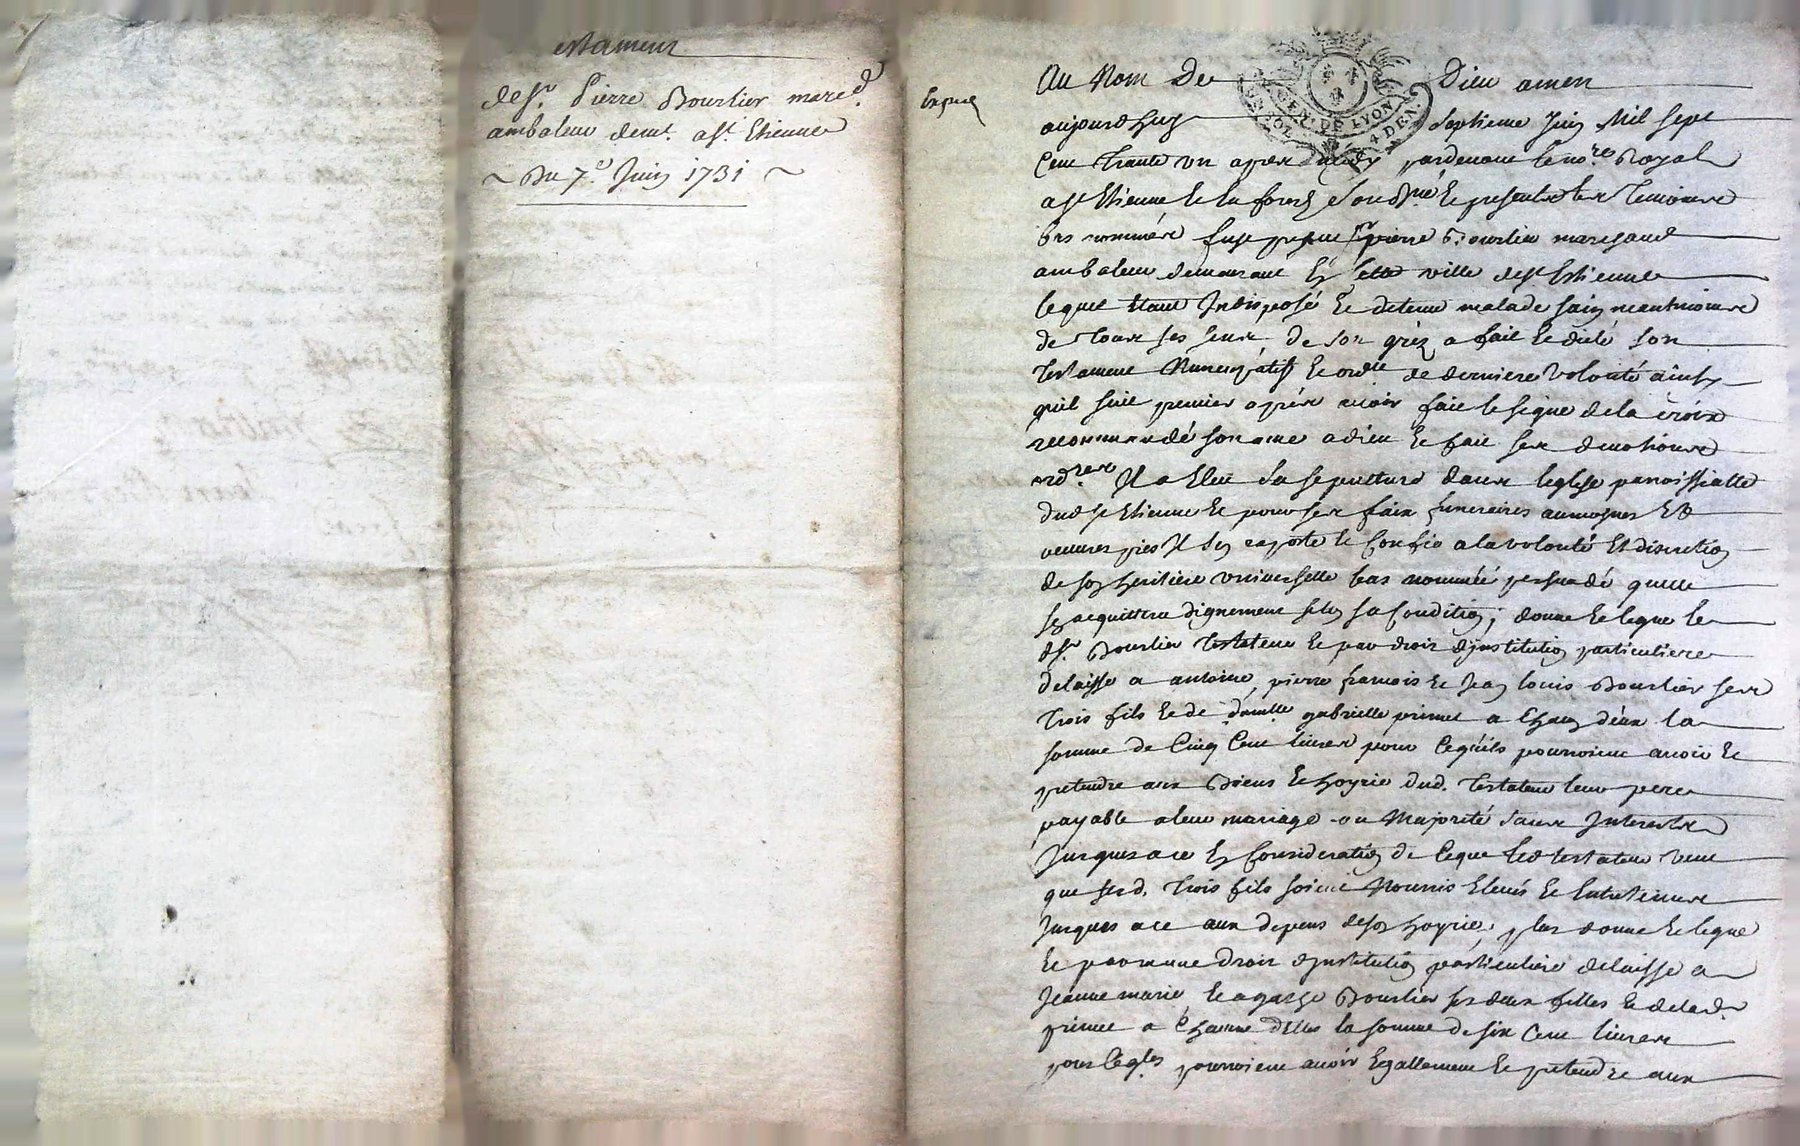 estament
de Sr. Pierre Bourlier march.d
ambaleur demt. a St. Etienne
~ Du 7e. Juin 1731 ~
Expedié
Au Nom De Dieu amen
GEN. DE LYON
4 DEN.
aujourdhuy septieme Juin Mil sept
Cent Trante un apres midy pardevant le no.re Royal
a St Etienne En forest soussigné Et presents les Temoins
bas nommés fust present Sr pierre Bourlier marchand
ambaleur demeurant En cette ville de St Estienne
lequel Etant Indisposé Et detenu malade sain neantmoins
de Tous ses sens, de son gréz a fait Et dicté son
Testament Nuncupatif Et ord.re de derniere volonté ainsy
quil suit premier aprés avoir fait le signe de la croix
recommandé son ame a dieu Et fait ses devotions
ord.res Il a Eleu sa sepulture dans leglise parroissialle
dud St Etienne Et pour ses frais funeraires aumosnes Et
œuvres pies Il sen raporte Et confie a la volonté Et discretion
de son heritiere universelle bas nommée persuadé quelle
sen acquittera dignement selon sa condition; donne Et legue le
d Sr. Bourlier Testateur Et par droit d'institution particuliere
delaisse a antoine, pierre francois Et Jean louis Bourlier ses
Trois fils Et de damlle gabrielle prime a Chacun deux la
somme de Cinq Cent livres pour Ce quils pourroient avoir Et
pretendre aux Biens Et hoyrie dud. Testateur leur pere
payable a leur mariage ou Majorité sans Interests
Jusques a ce En consideration de Ceque led testateur veut
que sesd. Trois fils soient Nourris Elevés Et Entretenus
Jusques a ce aux depens de son hoyrie; plus donne Et legue
Et par meme Droit d'institution particuliere delaisse a
Jeanne marie, Et agathe Bourlier ses deux filles Et de lad.
prime a Chacune d'Elles la somme de six Cent livres
pour Ce qles pourroient avoir Egallement Et pretendre aux